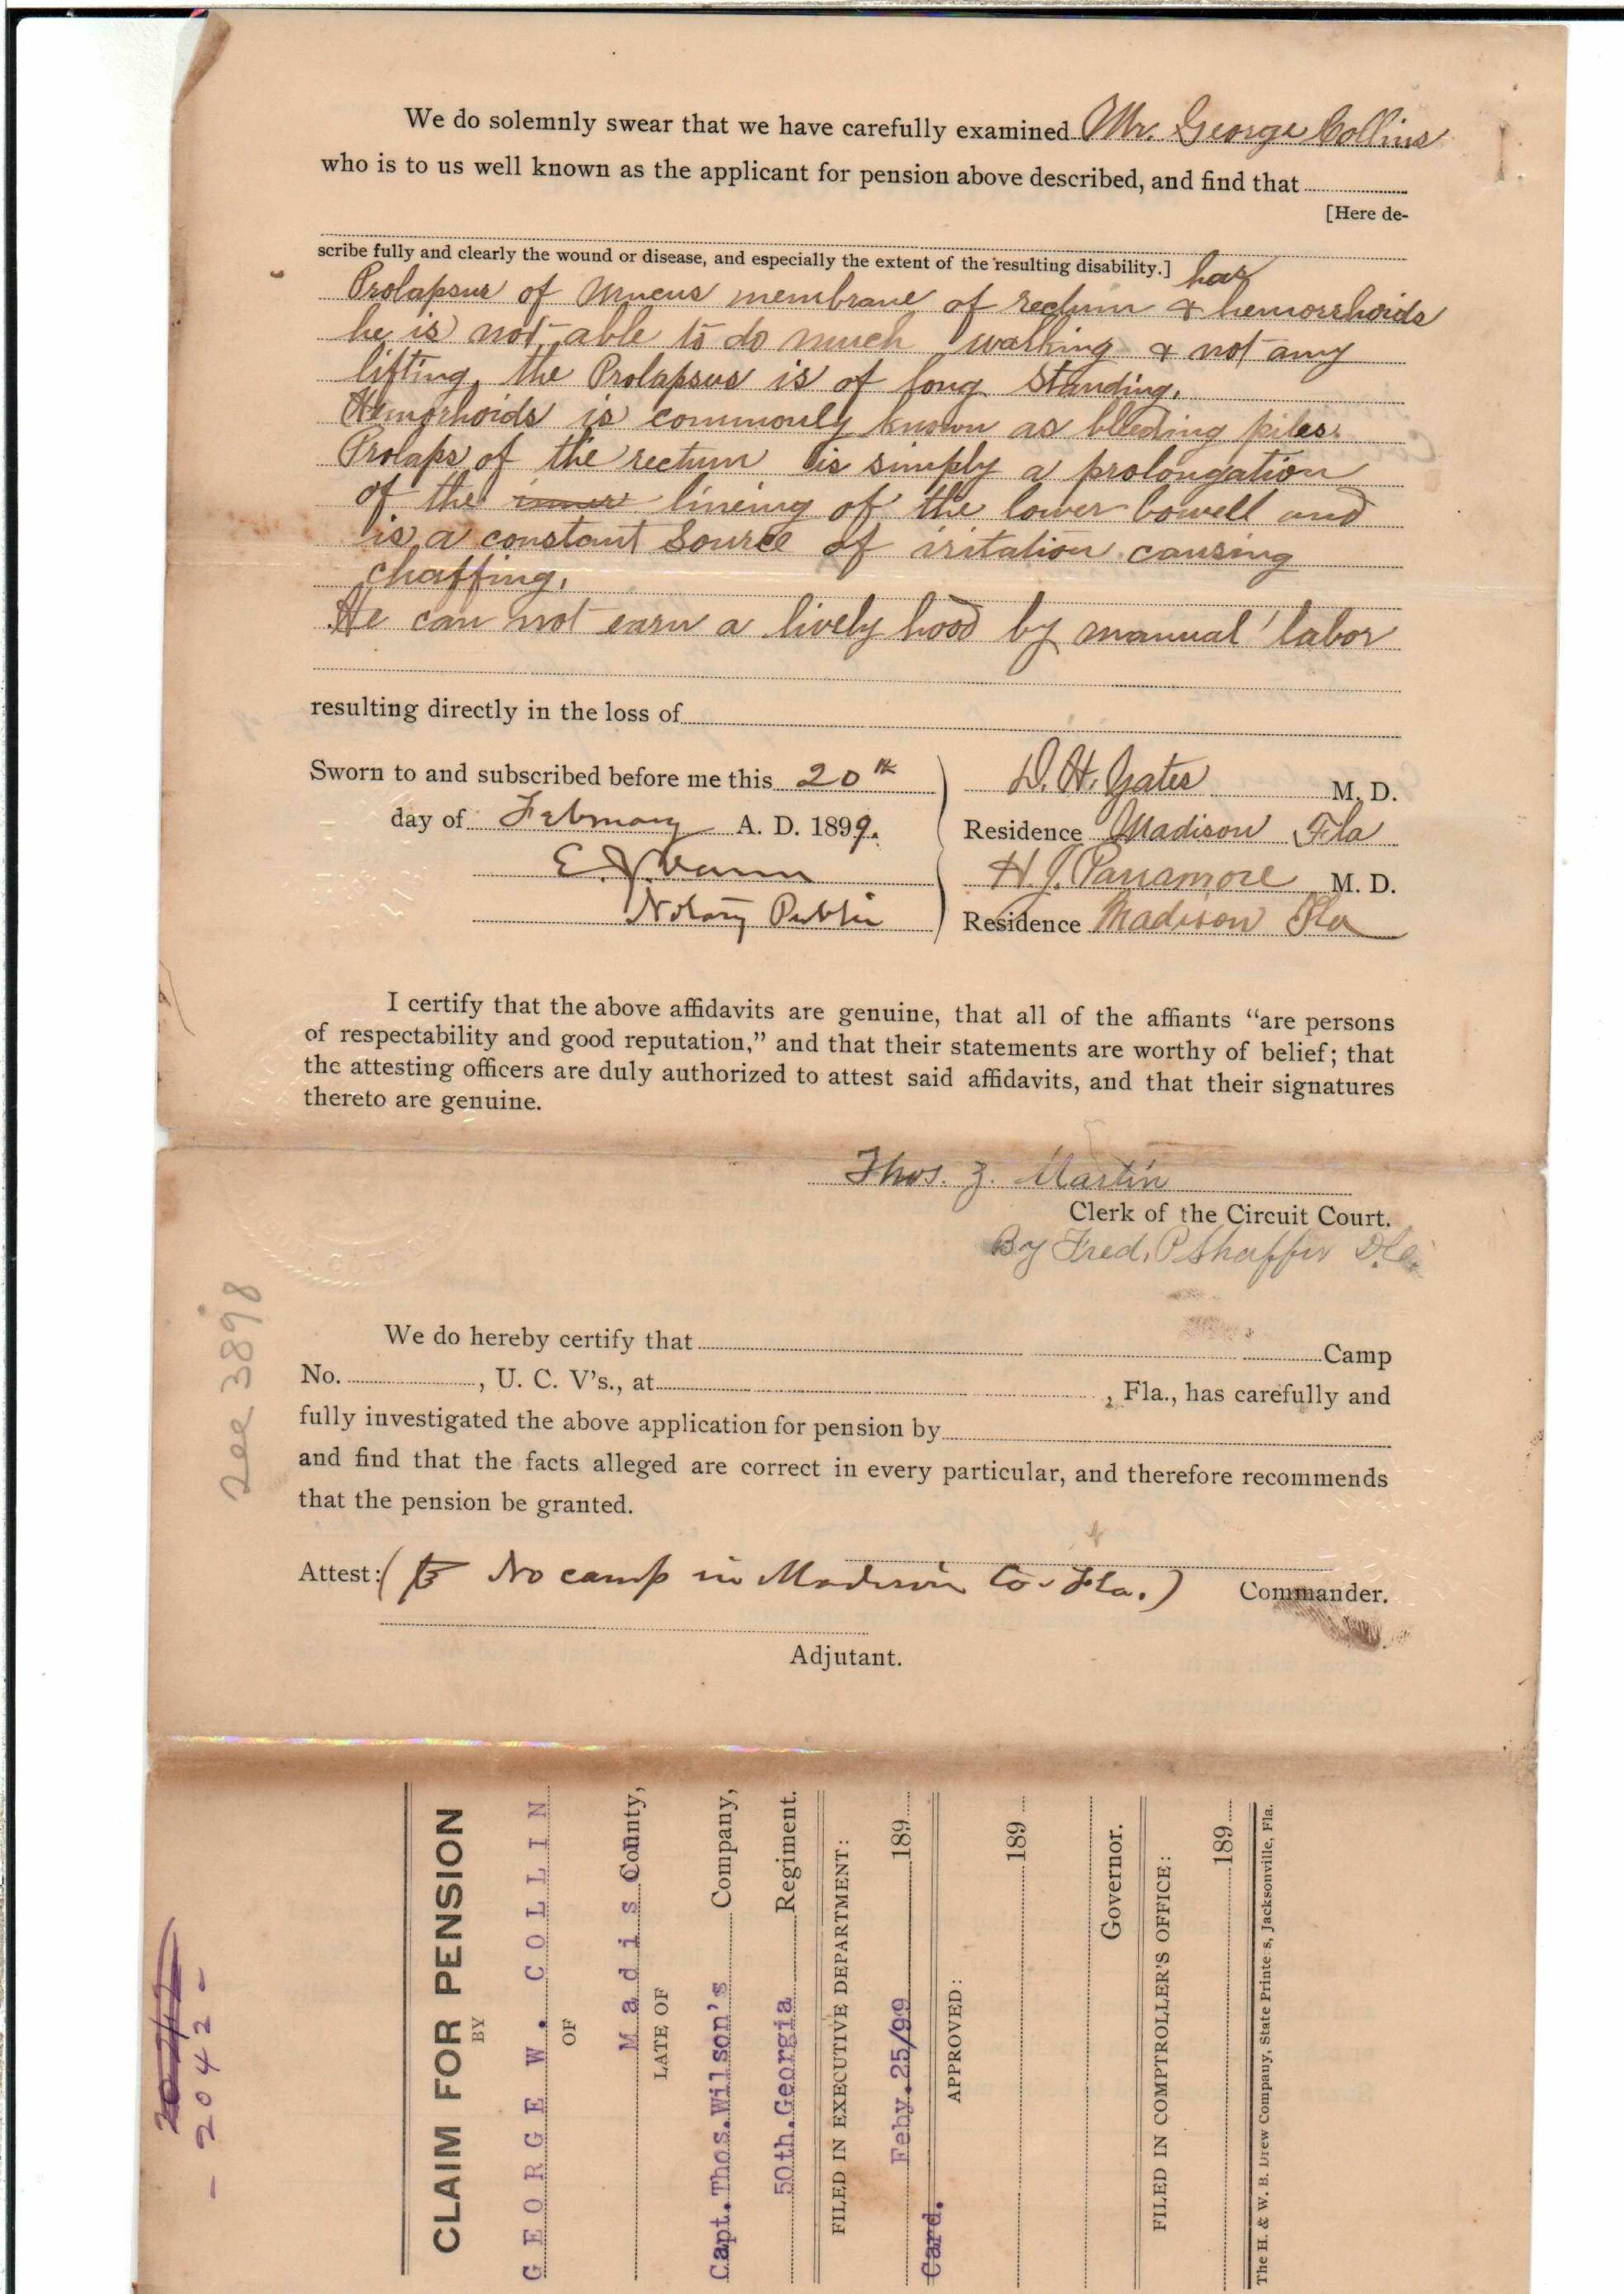 We do solemnly swear that we have carefully examined Mr. George Collins
who is to us well known as the applicant for pension above described, and find that
[Here de-
scribe fully and clearly the wound or disease, and especially the extent of the resulting disability.] has
Prolapsus of Mucus membrane of rectum & hemorrhoids
he is not able to do much walking & not any
lifting, the Prolapsus is of long standing.
Hemorhoids is commonly known as bleeding piles.
Prolaps of the rectum is simply a prolongation
of the inner lineing of the lower bowell and
is a constant Source of iritation causing
chaffing.
He can not earn a lively hood by manual labor
resulting directly in the loss of
Sworn to and subscribed before me this 20th
day of February A. D. 1899.
Notary Public
D. H. Yates M. D.
Residence Madison Fla
H. J. Parramore M. D.
Residence Madison Fla
I certify that the above affidavits are genuine, that all of the affiants "are persons
of respectability and good reputation," and that their statements are worthy of belief; that
the attesting officers are duly authorized to attest said affidavits, and that their signatures
thereto are genuine.
Thos. Z. Martin
Clerk of the Circuit Court.
By Fred. P Shaffer D.C.
See 3898
We do hereby certify that Camp
No. , U. C. V's., at , Fla., has carefully and
fully investigated the above application for pension by
and find that the facts alleged are correct in every particular, and therefore recommends
that the pension be granted.
Attest: ( No camp in Madison Co. Fla. ) Commander.
Adjutant.
- 2042 -
CLAIM FOR PENSION
BY
GEORGE W. COLLIN
OF
Madis County,
LATE OF
Capt. Thos. Wilson's Company,
50th. Georgia Regiment.
FILED IN EXECUTIVE DEPARTMENT:
Feby. 25/99 189
Card.
APPROVED:
189
Governor.
FILED IN COMPTROLLER'S OFFICE:
189
The H. & W. B. Drew Company, State Printe s, Jacksonville, Fla.